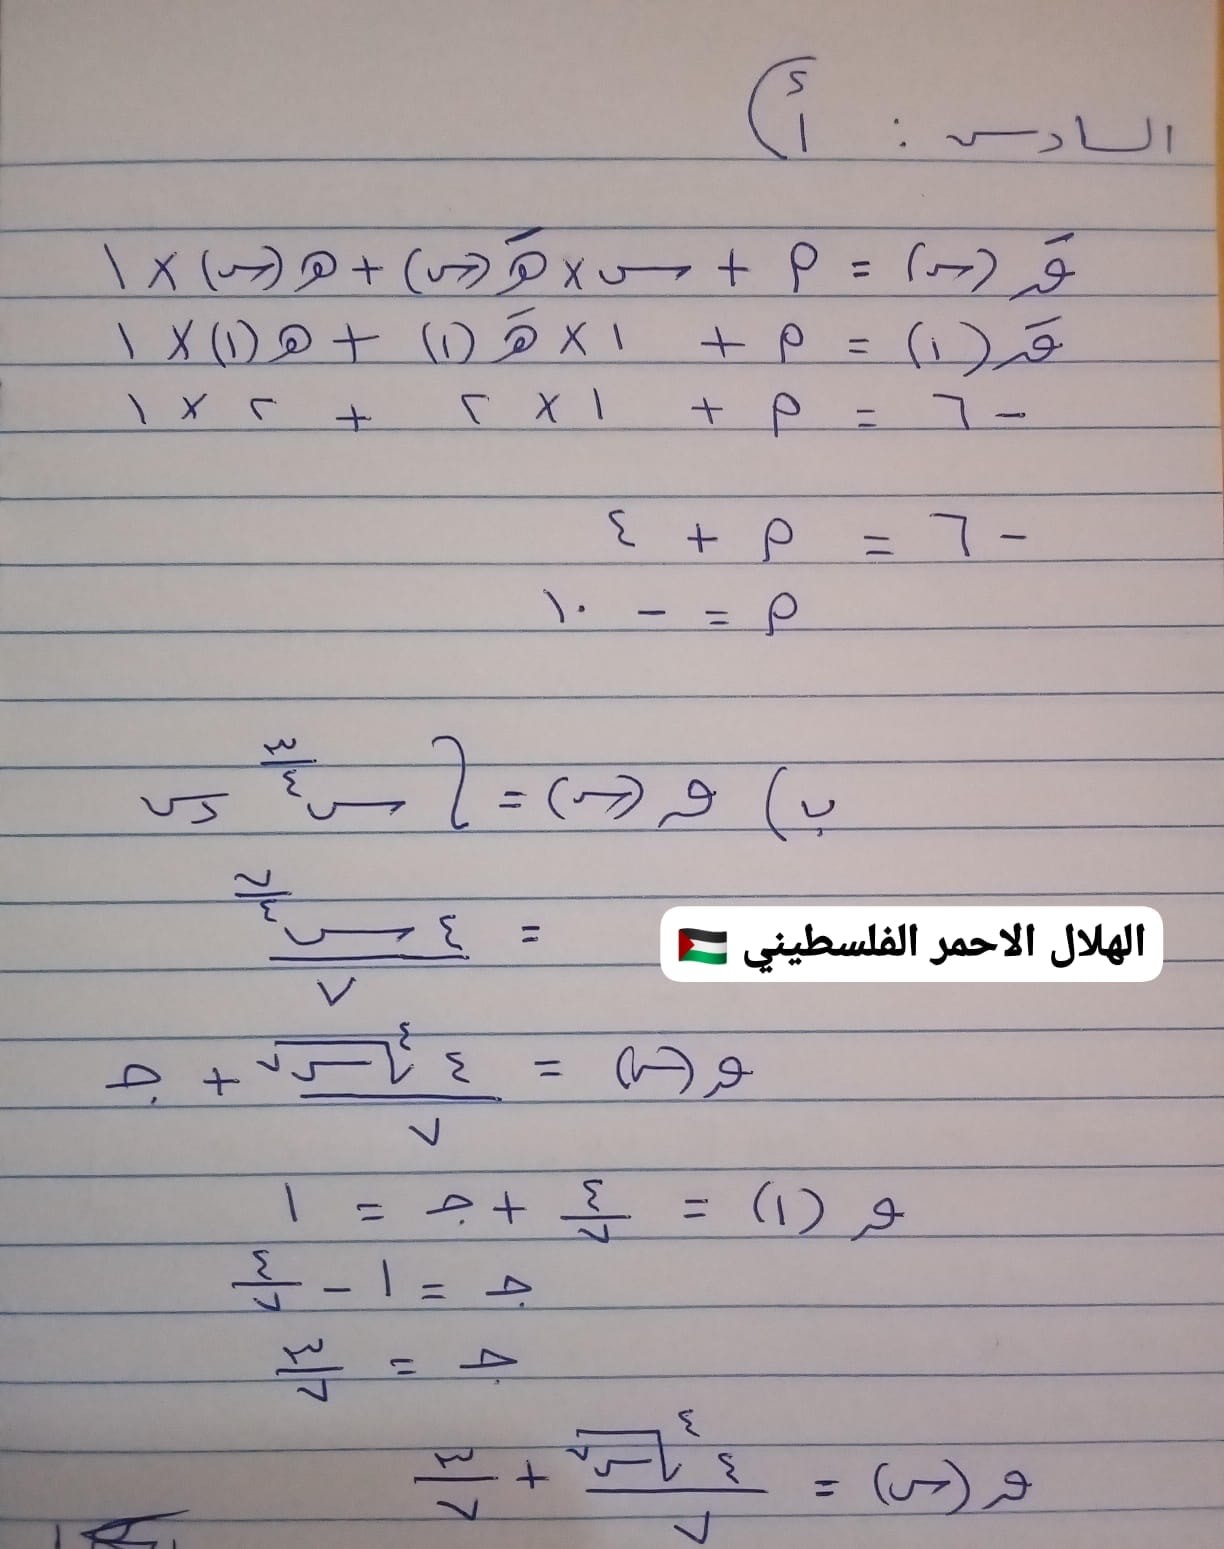 السادس : أ)
قَ(س) = م + س × هـَ(س) + هـ(س) × ١
قَ(١) = م + ١ × هـَ(١) + هـ(١) × ١
- ٦ = م + ١ × ٢ + ٢ × ١
- ٦ = م + ٤
م = - ١٠
ب) ق(س) = ∫ س^(٣/٤) دس
= ٤ س^(٧/٤) / ٧
الهلال الاحمر الفلسطيني 🇵🇸
ق(س) = ٤ ⁴√س^٧ / ٧ + جـ
ق(١) = ٤/٧ + جـ = ١
جـ = ١ - ٤/٧
جـ = ٣/٧
ق(س) = ٤ ⁴√س^٧ / ٧ + ٣/٧